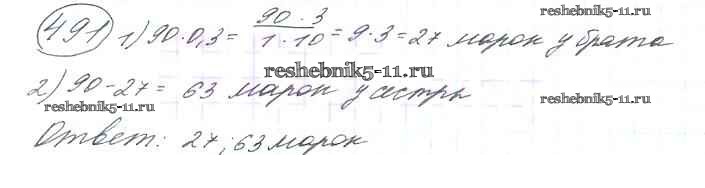 reshebnik5-11.ru
491 1) 90·0,3 = 90·3/1·10 = 9·3 = 27 марок у брата
reshebnik5-11.ru
2) 90-27 = 63 марок у сестры
reshebnik5-11.ru reshebnik5-11.ru
Ответ: 27; 63 марок